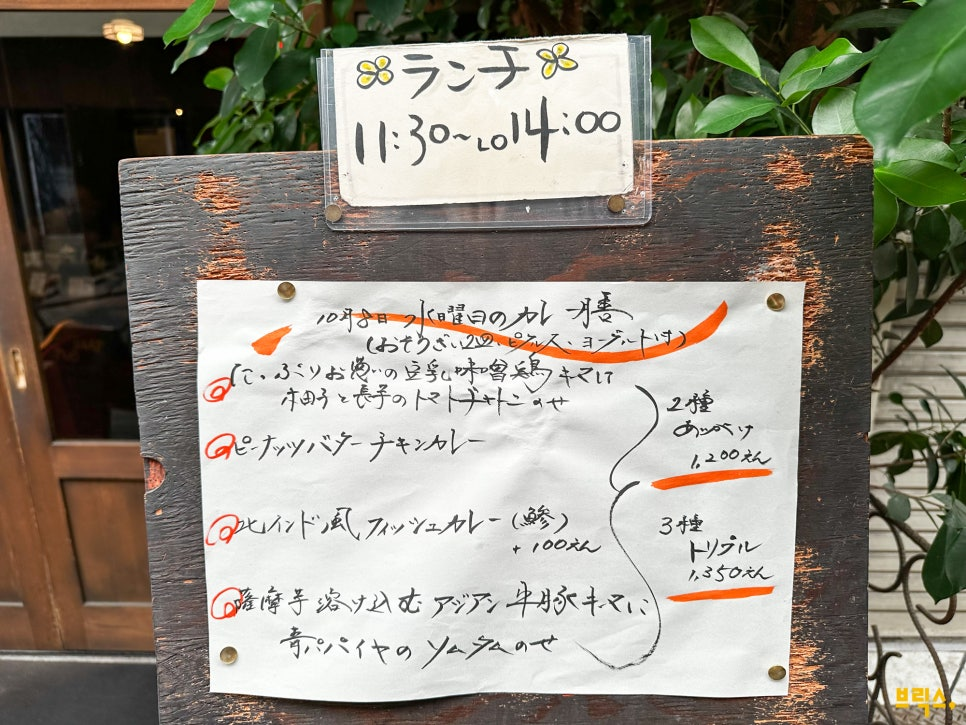 ランチ
11:30〜LO14:00
10月8日 水曜日のカレー膳
(おそうざい2皿、ピクルス、ヨーグルト付)
の豆乳味噌鶏キマに
柚子と 子のトマトチャトニのせ
ピーナッツバターチキンカレー
北インド風フィッシュカレー(鯵)
+100えん
薩摩芋溶け込むアジアン牛豚キーマに
青パパイヤのソムタムのせ
2種
あいがけ
1,200えん
3種
トリプル
1,350えん
브릭스,